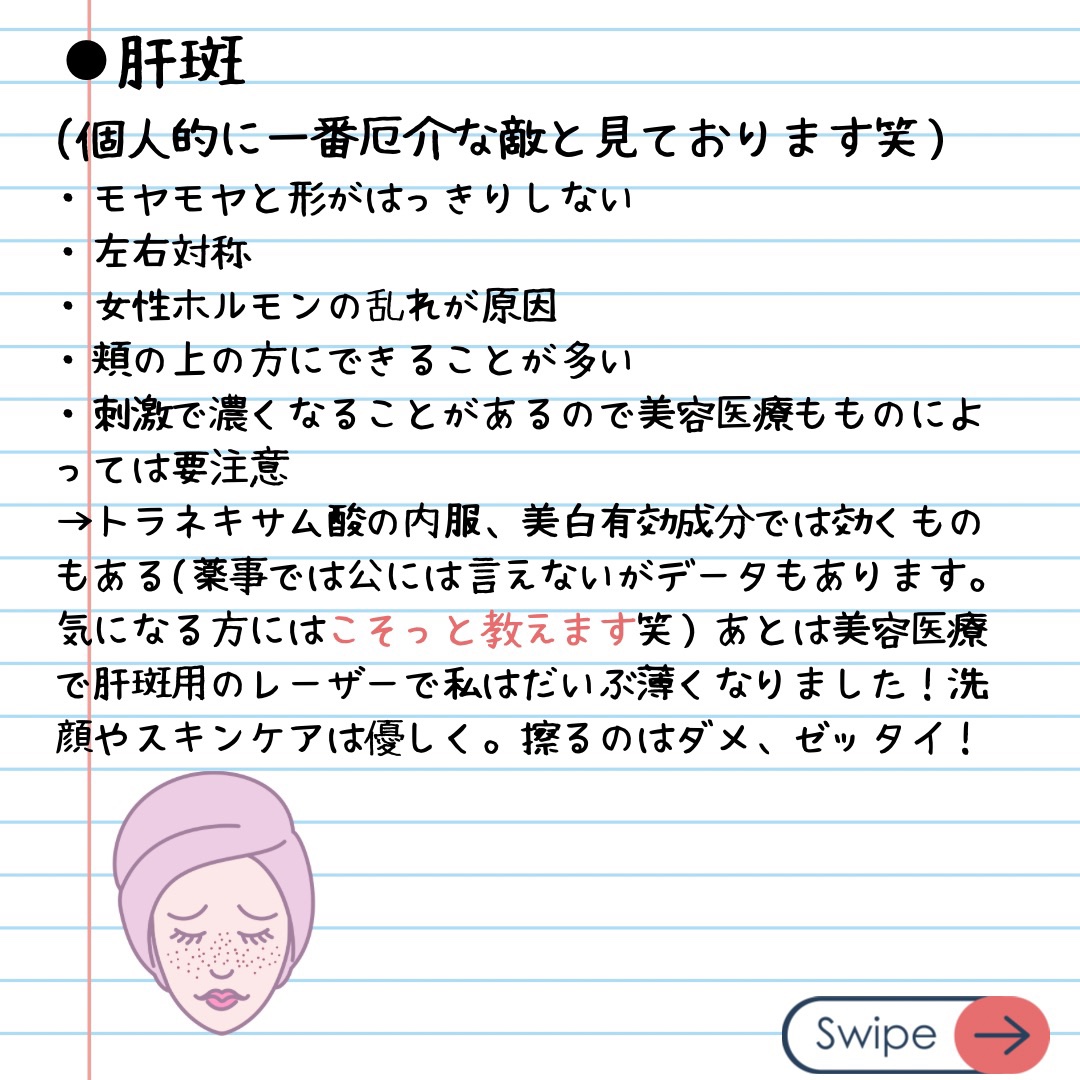 ●肝斑
(個人的に一番厄介な敵と見ております笑)
・モヤモヤと形がはっきりしない
・左右対称
・女性ホルモンの乱れが原因
・頬の上の方にできることが多い
・刺激で濃くなることがあるので美容医療もものによ
っては要注意
→トラネキサム酸の内服、美白有効成分では効くもの
もある(薬事では公には言えないがデータもあります。
気になる方にはこそっと教えます笑)あとは美容医療
で肝斑用のレーザーで私はだいぶ薄くなりました！洗
顔やスキンケアは優しく。擦るのはダメ、ゼッタイ！
Swipe